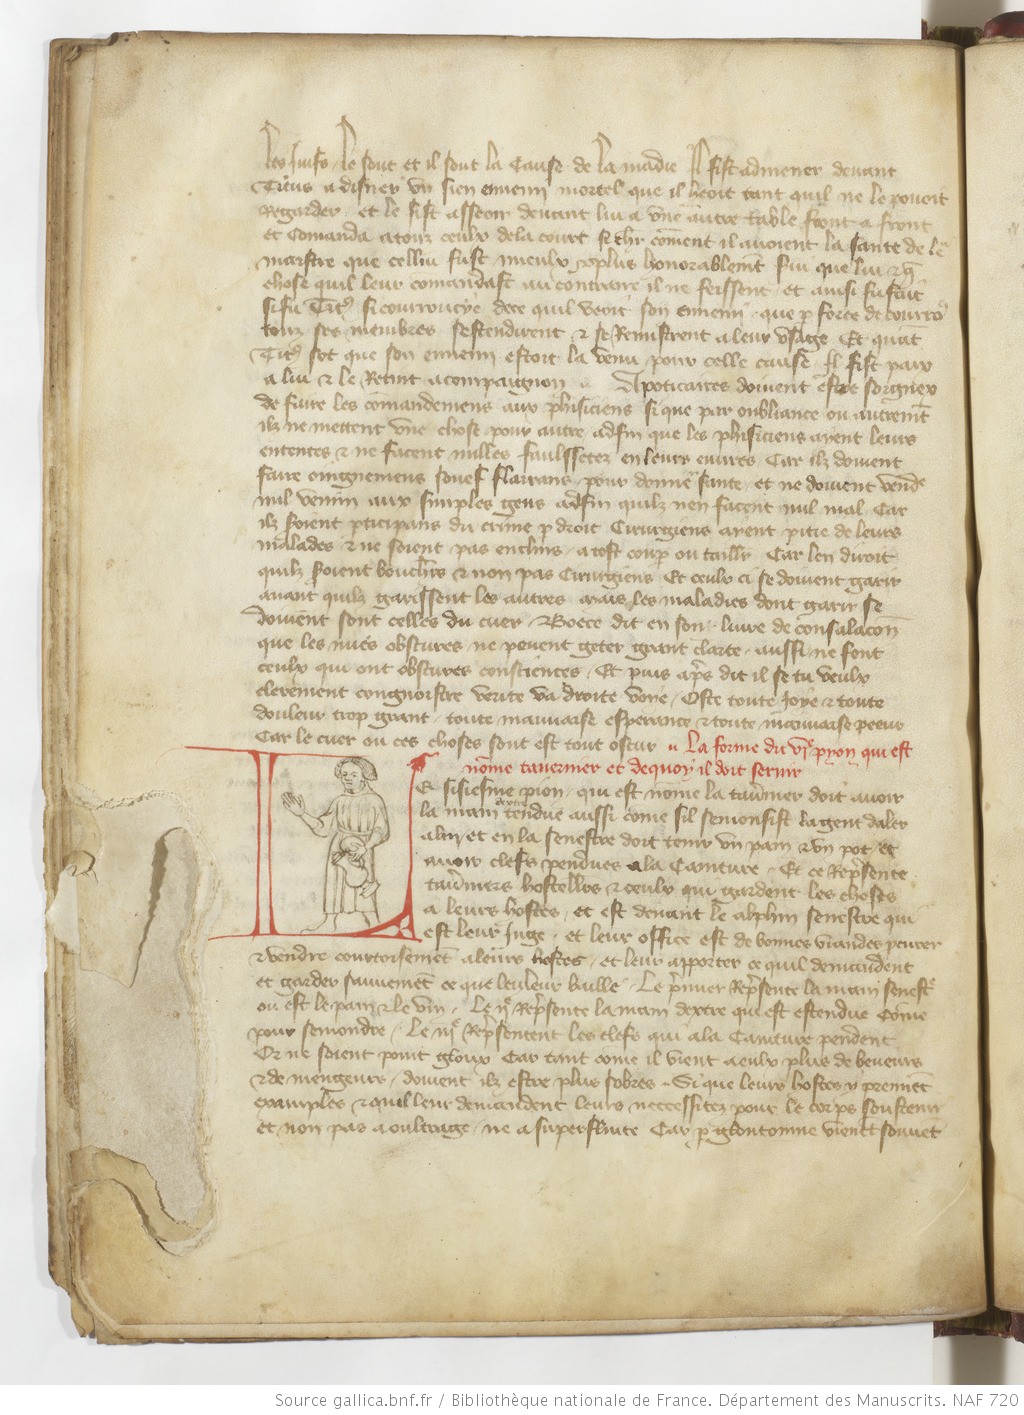 les Juifs le sont et il sont la Cause de la madie Il fist admener devant
Titus a disner un sien ennemi mortel que il heoit tant quil ne le povoit
Regarder et le fist asseoir devant lui a une autre table front a front
et Comanda a touz ceulx de la court comēt il avoient la sante de le
maistre que cellui fust mieulx et plus honorablemēt que lui
chose quil leur comandast au contraire il ne feissent et ainsi fu fait
si fu Tit9 si courroucye dece quil veoit son ennemi que p force de courro
touz ses membres sestendirent & se Remistrent a leur usage Et quāt
Tit9 sot que son ennemi estoit la venu pour celle cause Il fist paix
a lui & le Retint a compaignon Apoticaires doivent estre soignex
de faire les cōmandemens aux phisiciens si que par oubliance ou autremēt
ilz ne mettent une chose pour autre adfin que les phisiciens ayent leurs
ententes & ne facent nulles faulssetez en leurs euvres Car ilz doivent
faire oingnemens souef flairans pour donner sante et ne doivent vendr
nul venim aux simples gens adfin quilz nen facent nul mal Car
ilz soient pticipans du crime p droit Cirurgiens ayent pitie de leurs
malades & ne soient pas enclins a tost coup ou taillr Car len diroit
quilz soient bouchrs & non pas Cirurgiens Et ceulx ci se doivent garir
avant quilz garissent les autres mais les maladies dont garir se
doivent sont celles du cuer Boece dit en son livre de consalacōn
que les nues obscures ne pevent geter grant clarte aussi ne font
ceulx qui ont obscures consciences Et puis aps dit il se tu veulx
clerement congnoistre verite va droite voye Oste toute joye & toute
douleur trop grant toute mauvaise esperance & toute mauvaise peeur
Car le cuer ou ces choses sont est tout oscur La forme du vi.e pyon qui est
nōme tavernier et dequoy il doit servir
Le sisiesme pion qui est nōme la tavnier doit avoir
la main dextre tendue aussi come sil semonsist la gent daler
a luy et en la senestre doit tenir un pain & un pot et
avoir clefs pendues a la Cainture Et ce Repsente
tavniers hostellrs & ceulx qui gardent les choses
a leurs hostes et est devant le alphin senestre qui
est leur Juge et leur office est de bonnes viandes
& vendre courtoisemēt a leurs hostes et leur apporter ce quil demandent
et garder sauvemēt ce que leu leur baille Le pmier Repsente la main senestr
ou est le pain & le vin Le ii.e Repsente la main dextre qui est estendue Cōme
pour semondre Le iii.e Repsentent les clefs qui a la Cainture pendent
Or ne soient point gloux Car tant come il vient a eulx plus de beveurs
& de mengeurs doivent ilz estre plus sobres Si que leurs hostes y prennēt
examples & quil leur demandent leurs necessitez pour le corps soustenir
et non pas a oultrage ne a superfluite Car p gloutonnie vient souvēt
Source gallica.bnf.fr / Bibliothèque nationale de France. Département des Manuscrits. NAF 720